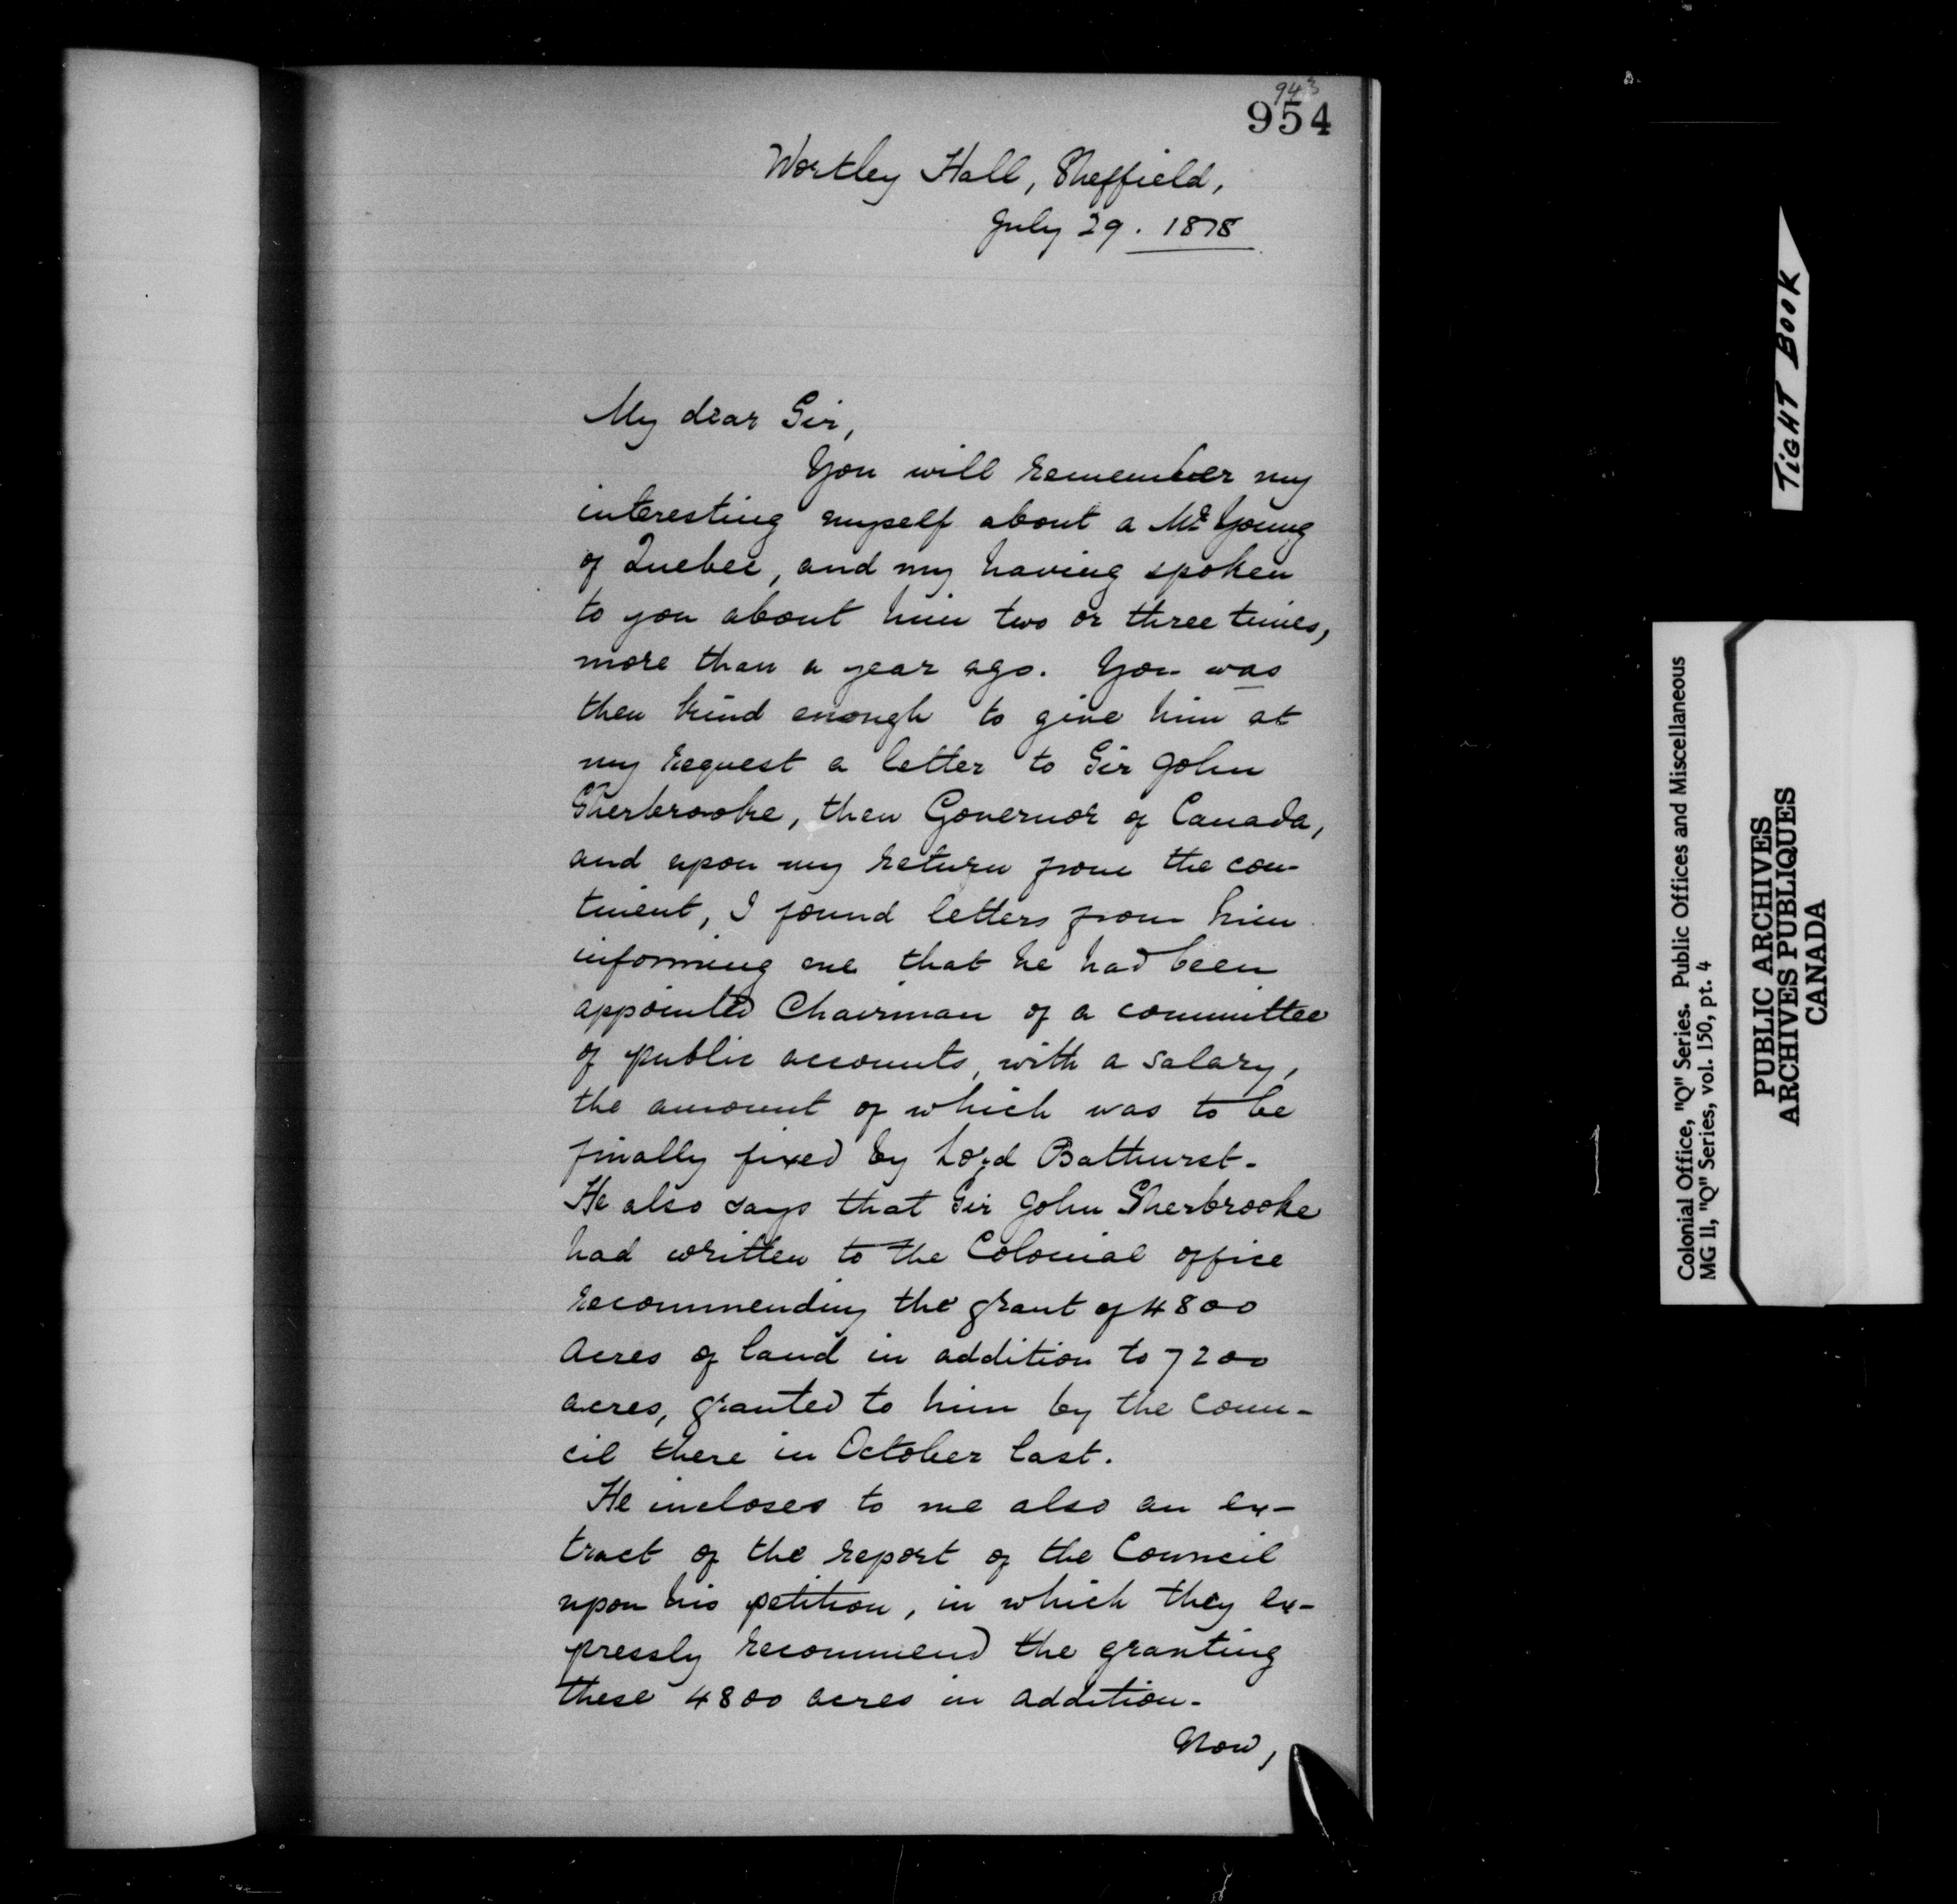 943
954
Wortley Hall, Sheffield,
July 29. 1878
My dear Sir,
You will remember my
interesting myself about a Mr Young
of Quebec, and my having spoken
to you about him two or three times,
more than a year ago. You was
then kind enough to give him at
my request a letter to Sir John
Sherbrooke, then Governor of Canada,
and upon my return from the con-
tinent, I found letters from him
informing me that he had been
appointed Chairman of a committee
of public accounts, with a salary,
the amount of which was to be
finally fixed by Lord Bathurst.
He also says that Sir John Sherbrooke
had written to the Colonial office
recommending the grant of 4800
acres of land in addition to 7200
acres, granted to him by the Coun-
cil there in October last.
He incloses to me also an ex-
tract of the report of the Council
upon his petition, in which they ex-
pressly recommend the granting
these 4800 acres in addition.
Now,
TIGHT BOOK
Colonial Office, "Q" Series. Public Offices and Miscellaneous
MG 11, "Q" Series, vol. 150, pt. 4
PUBLIC ARCHIVES
ARCHIVES PUBLIQUES
CANADA